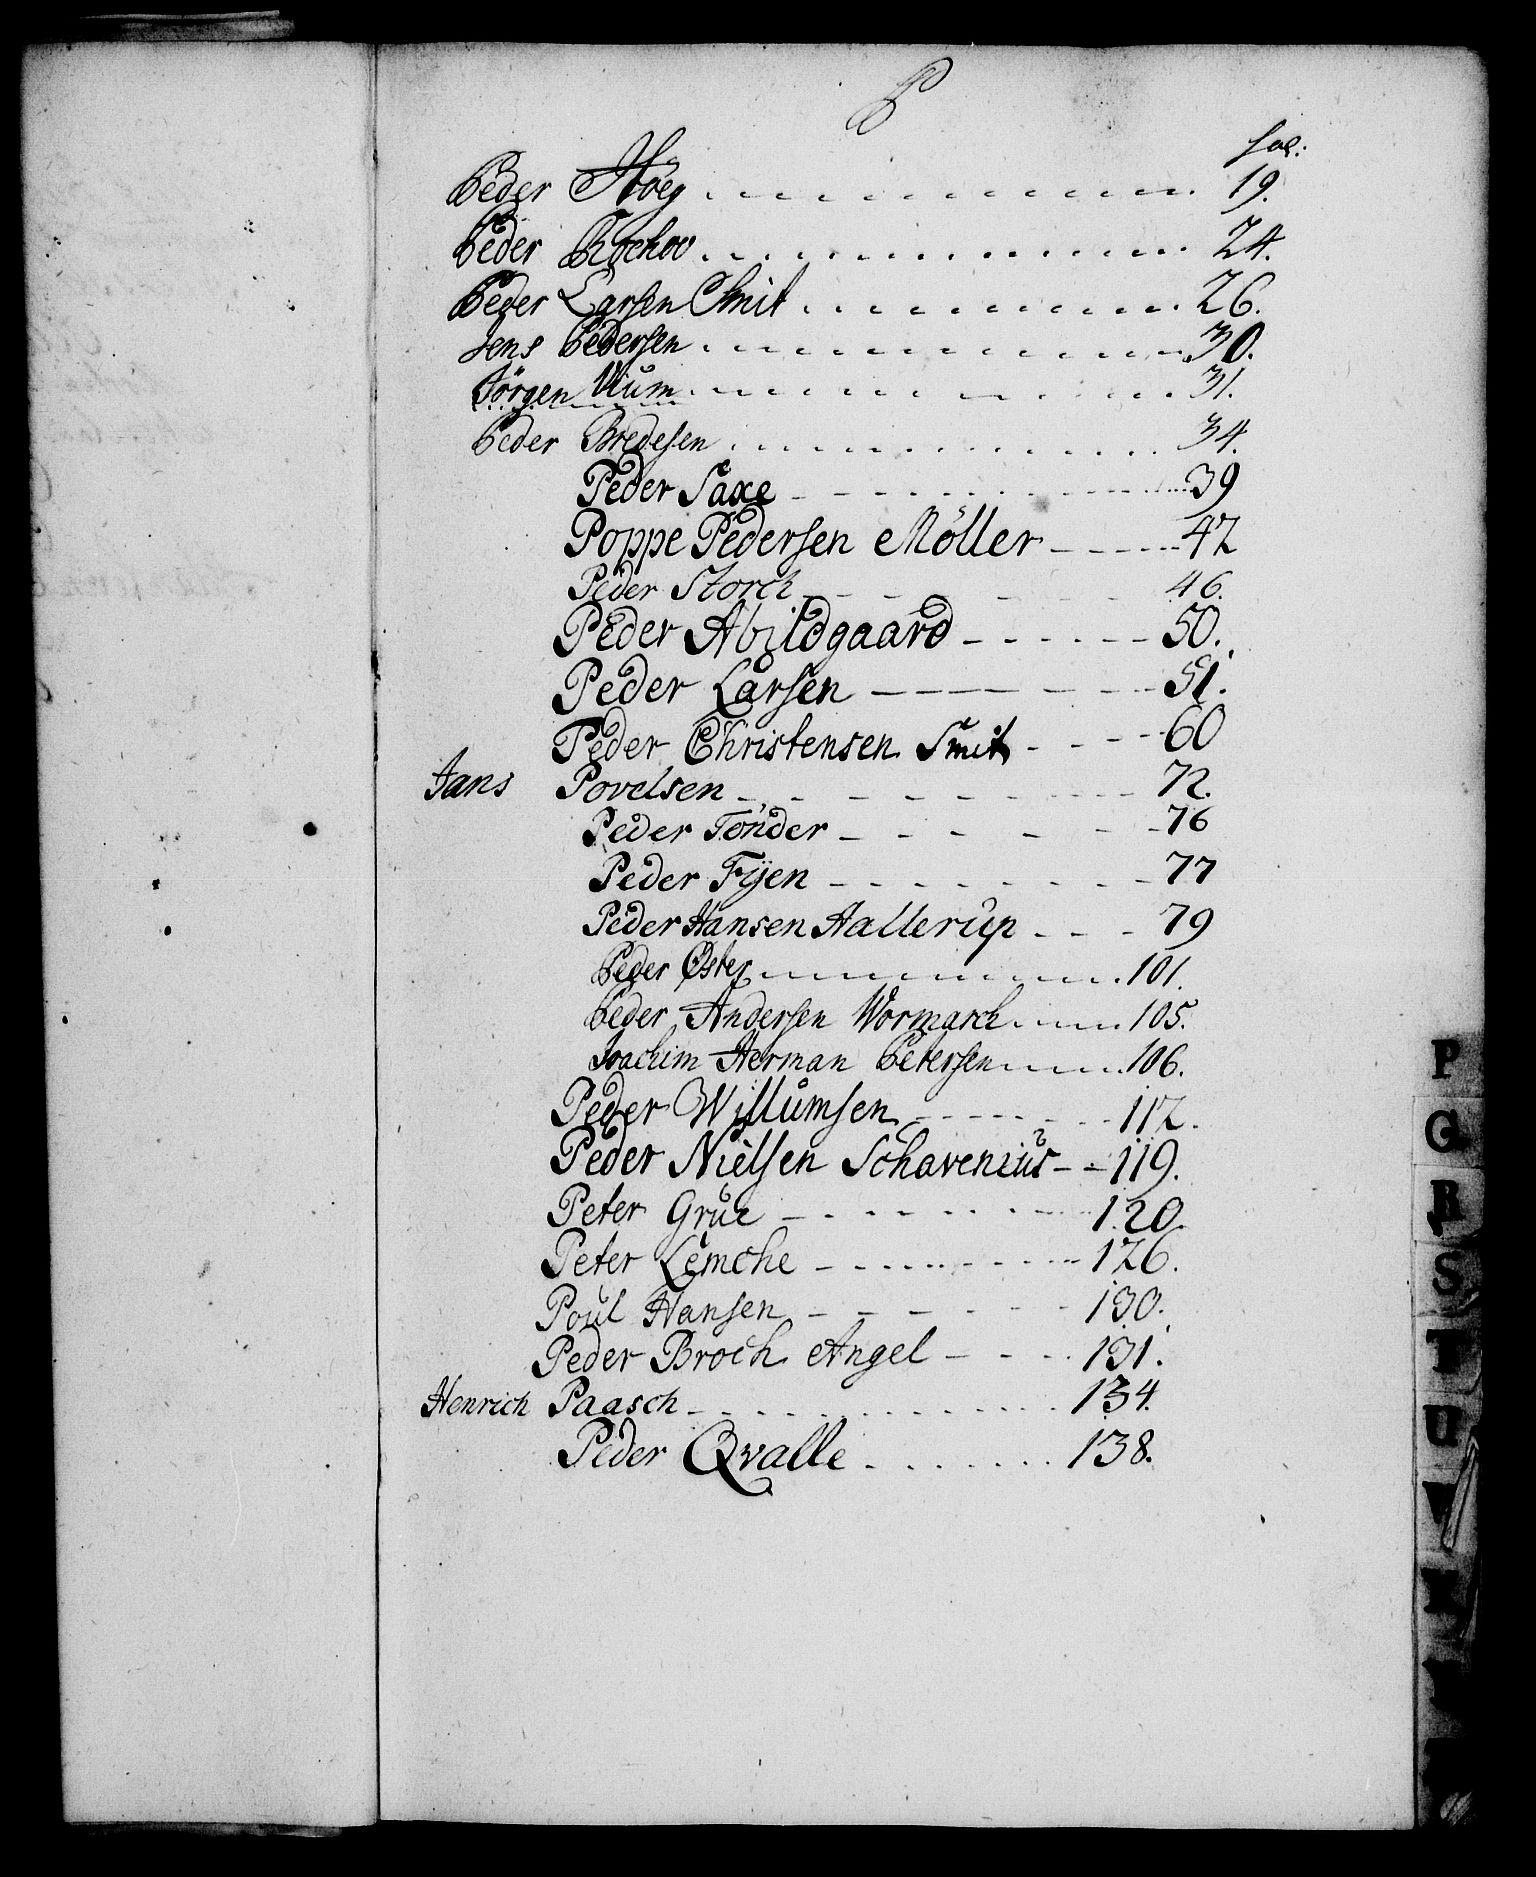 P
fol:
Peder Höeg 19.
Peder Rochov 24.
Peder Larsen Smit 26.
Jens Pedersen 30.
Jörgen Wium 31.
Peder Bredesen 34.
Peder Saxe 39
Poppe Pedersen Möller 42
Peder Storch 46.
Peder Abildgaard 50.
Peder Larsen 51.
Peder Christensen Smit 60
Jans Povelsen 72.
Peder Tönder 76
Peder Fÿen 77
Peder Hansen Hallerup 79
Peder Øster 101.
Peder Andersen Wormarck 105.
Joachim Herman Petersen 106.
Peder Willumsen 112.
Peder Nielsen Schavenius 119.
Peter Grue 120.
Peter Lemche 126.
Poul Hansen 130.
Peder Broch Angel 131.
Henrich Paasch 134.
Peder Qvalle 138.
P
Q
R
S
T
U